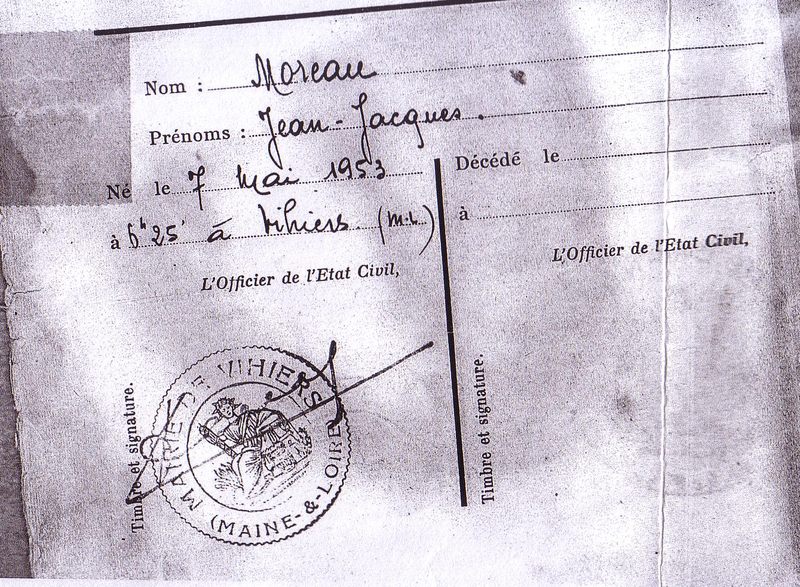 Nom : Moreau
Prénoms : Jean-Jacques.
Né le 7 Mai 1953
à 6h 25' à Vihiers. (M.L)
L'Officier de l'Etat Civil,
Timbre et signature.
MAIRIE DE VIHIERS
(MAINE-&-LOIRE)
Décédé le
à
L'Officier de l'Etat Civil,
Timbre et signature.